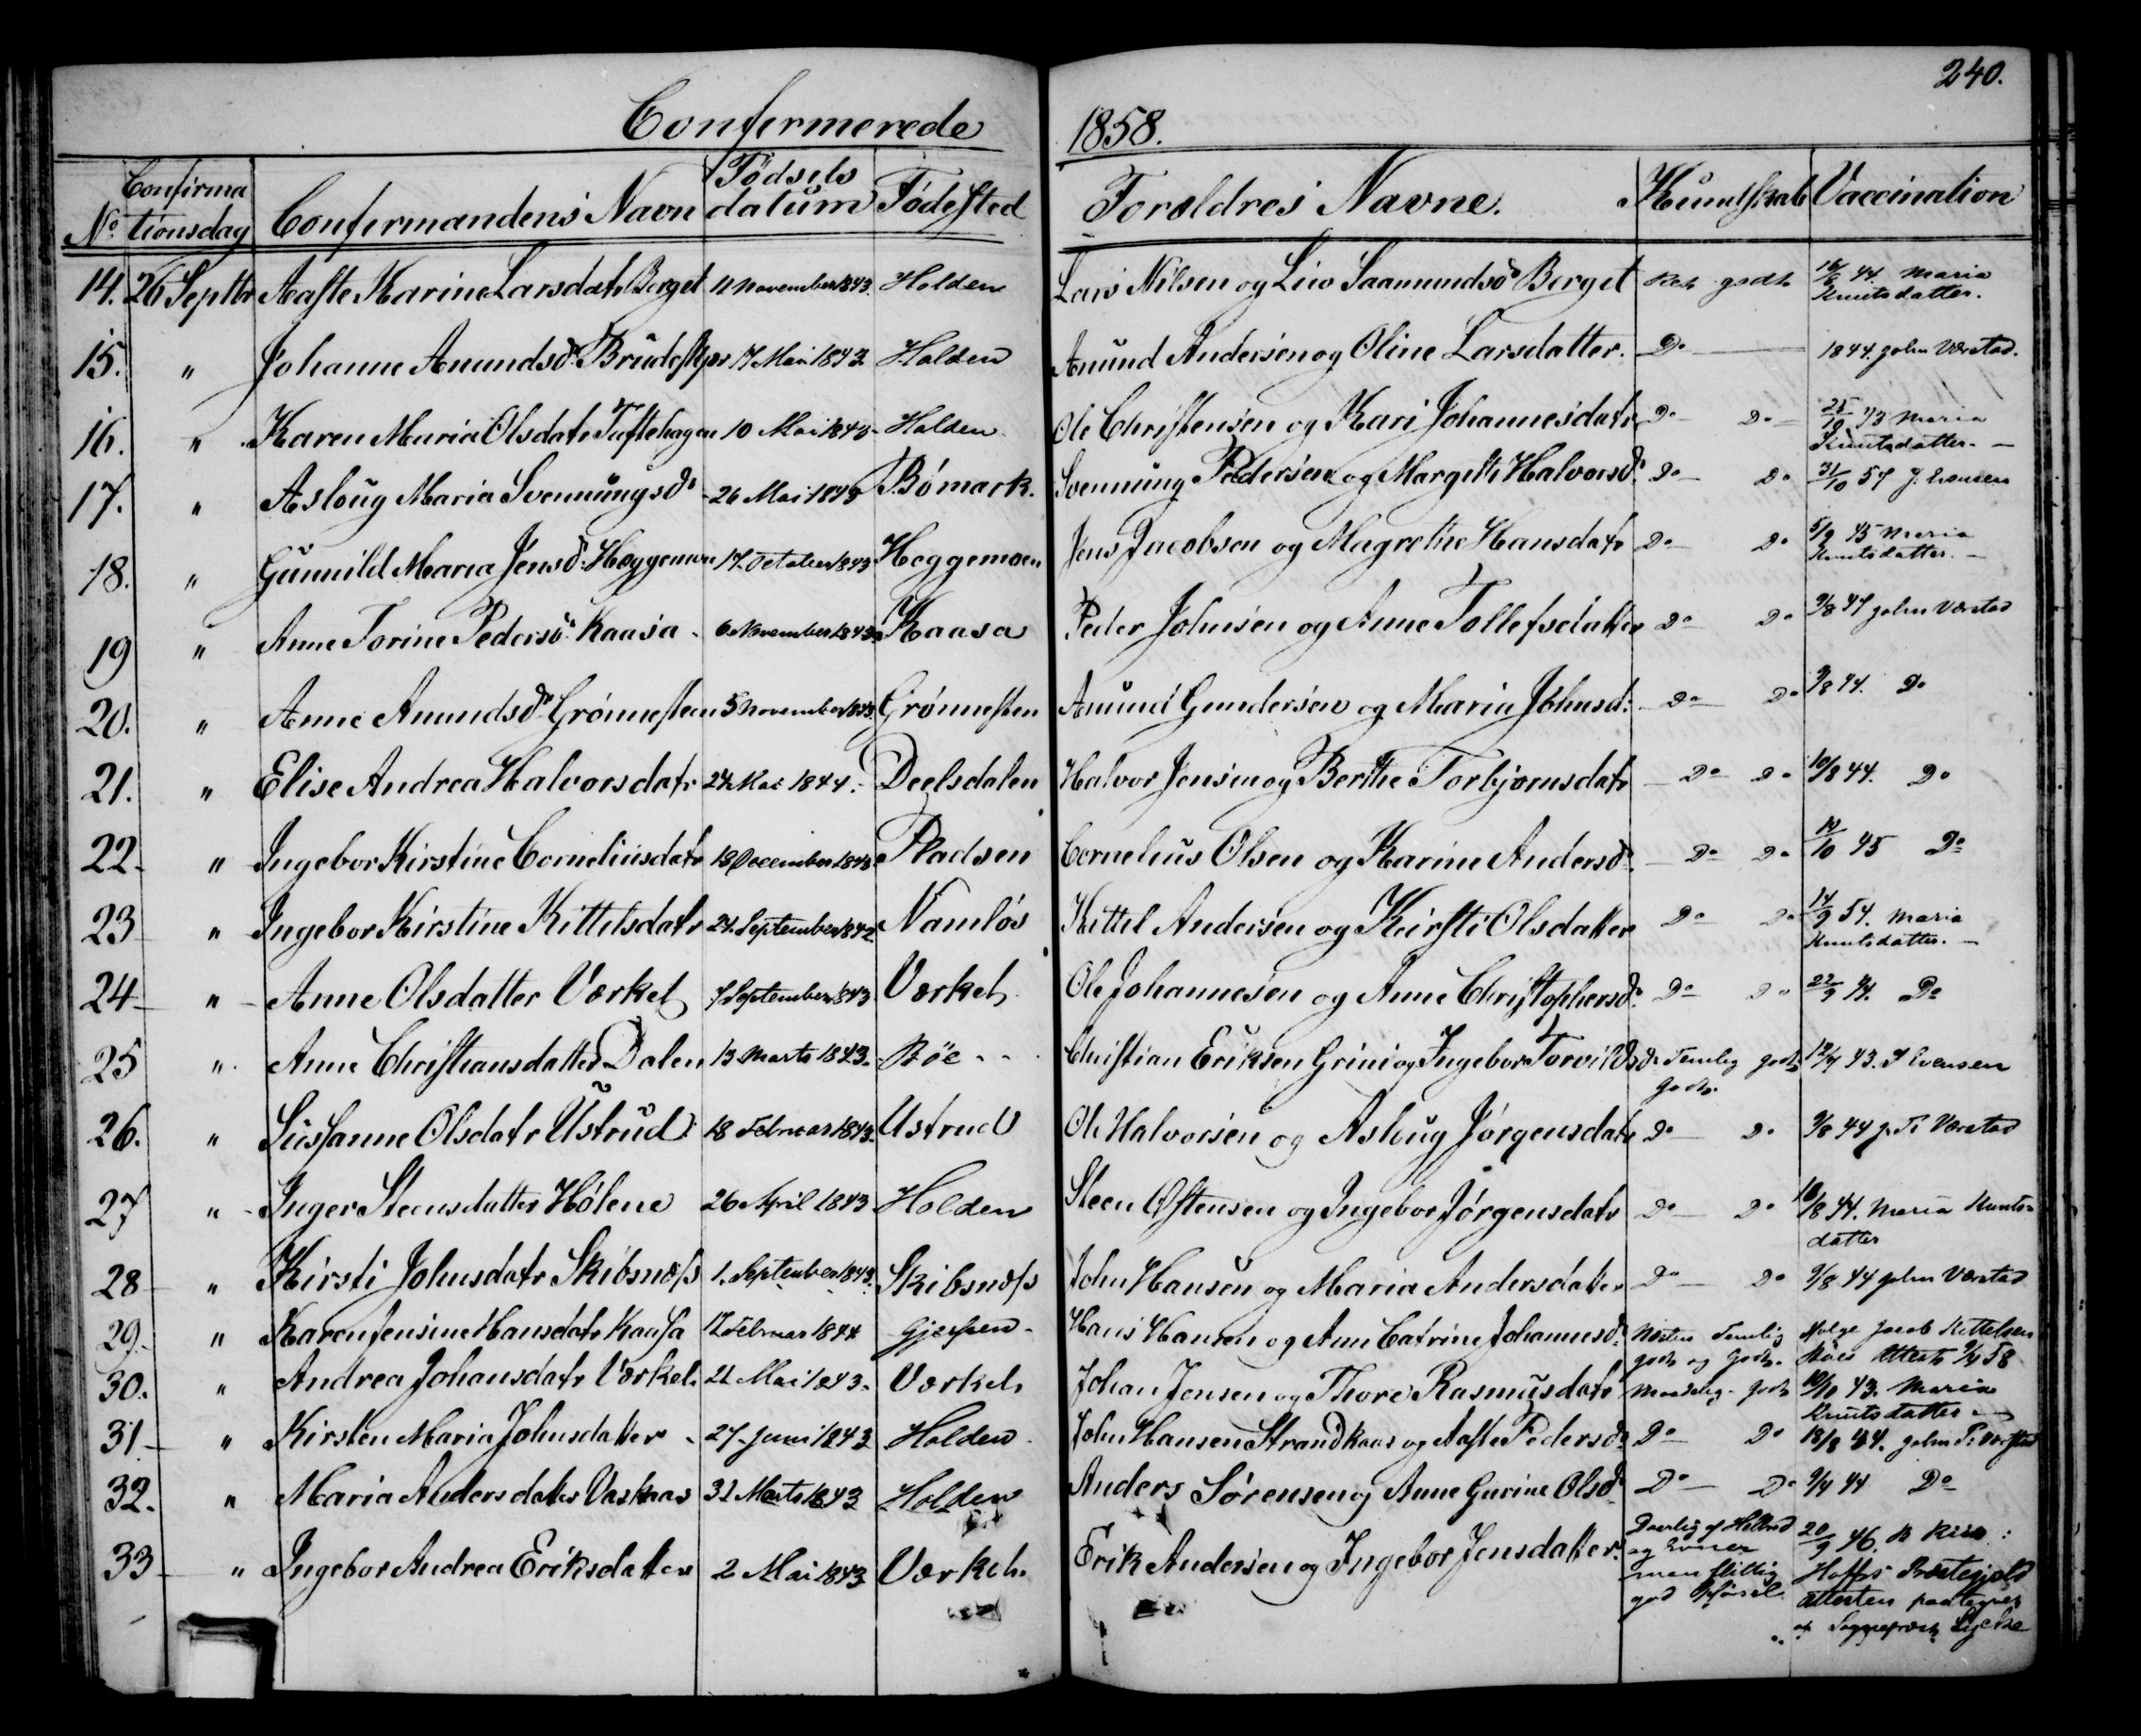 240.
Confermerede 1858.
No. Confirmationsdag Confermandens Navn Födsels datum Födested Foreldres Navne. Kundskab Vaccination
14. 26 Septbr Aaste Karine Larsdatr Berget 11 November 1843. Holden Lars Nilsen og Liv Saamundsd Berget godt 16/6 44. Maria Knutsdatter.
15. " Johanne Amundsd. 17 Mai 1843 Holden Amund Andersen og Oline Larsdatter. Do 1844. John Værstad.
16. " Karen Maria Olsdatr Tuftehagen 10 Mai 1843 Holden Ole Christensen og Kari Johannesdatr Do Do 43 Maria Knutsdatter.
17. " Asloug Maria Svennungsdr 26 Mai 1843 Bömark. Svennung Pedersen og Margith Halvorsdr Do Do 31/10 57 J. Evensen
18. " Gunnild Maria Jensd. Heggemoen 17 October 1843 Heggemoen Jens Jacobsen og Magrethe Hansdatr Do Do 5/9 45 Maria Knutsdatter.
19 " Anne Torine Pedersd. Kaasa 6 November 1843 Kaasa Peder Johnsen og Anne Tollefsdatter Do Do 9/8 47 John Værstad
20. " Anne Amundsdr Grönnesteen 5 November 1843 Grönnesten Amund Gundersen og Maria Johnsd: Do Do 9/8 44. Do
21. " Elise Andrea Halvorsdatr 24 Mai 1844. Deelsdalen Halvor Jensen og Berthe Torbjornsdatr Do Do 10/8 44. Do
22 " Ingebor Kirstine Corneliusdatr 18 December 1843 Pladsen Cornelius Olsen og Karine Andersdr. Do Do 45 Do
23 " Ingebor Kirstine Kittelsdatr 24 September 1842 Namlös Kittel Andersen og Kirsti Olsdatter Do Do 14/9 54. Maria Knutsdatter.
24 " Anne Olsdatter Værket 7 September 1843 Værket Ole Johannesen og Anne Christophersdr. Do Do 22/9 44. Do
25 " Anne Christiansdatter Dalen 13 Marts 1843. Böe Christian Eriksen Grini og Ingebor Torvildsdr Temlig godt godt. 43. J Evensen
26. " Sussanne Olsdatr Ustrud 18 Februar 1843. Ustrud Ole Halvorsen og Asloug Jörgensdatr Do Do 9/8 44 J. T. Værstad
27 " Inger Steensdatter Hölene 26 April 1843 Holden Steen Østensen og Ingebor Jörgensdatr Do Do 18/8 44. Maria Knutsdatter
28 " Kirsti Johnsdatr Skibsnæss 1. September 1843. Skibsnæss John Hansen og Maria Andersdatter Do Do 9/8 44 John Værstad
29. " Karen Jensine Hansdatr Kaasa 12 Februar 1844 Gjerpen Hans Hansen og Ann Catrine Johannesd. Næsten Temlig godt og godt. ifölge Jacob Kittelsen Attest 58
30. " Andrea Johansdatr Værket 21 Mai 1843. Værket Johan Jensen og Thore Rasmusdatr Maadelig godt 10/10 43. Maria Knutsdatter
31 " Kirsten Maria Johnsdatter 27 Juni 1843 Holden John Hansen Strandkaas og Aaste Pedersdr Do Do 18/8 44. John T. Værstad
32. " Maria Andersdatter Vaskaas 31 Marts 1843 Holden Anders Sörensen og Anne Gurine Olsdr Do Do 9/4 44 Do
33 " Ingebor Andrea Eriksdatter 2 Mai 1843 Værket. Erik Andersen og Ingebor Jensdatter. Daarlig af Helbred og Evner men flittig god Opförsel 20/9 46. Attesten paategnet af Sognepræst Lycke